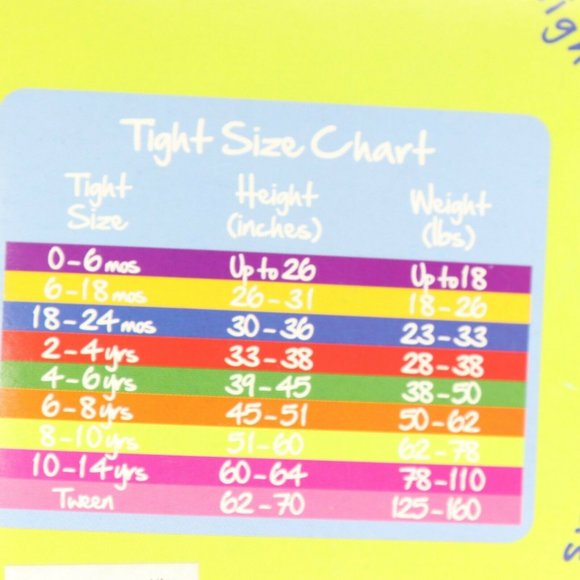 Tight Size Chart
Tight Size Height (inches) Weight (lbs)
0-6 mos Up to 26 Up to 18
6-18 mos 26-31 18-26
18-24 mos 30-36 23-33
2-4 yrs 33-38 28-38
4-6 yrs 39-45 38-50
6-8 yrs 45-51 50-62
8-10 yrs 51-60 62-78
10-14 yrs 60-64 78-110
Tween 62-70 125-160